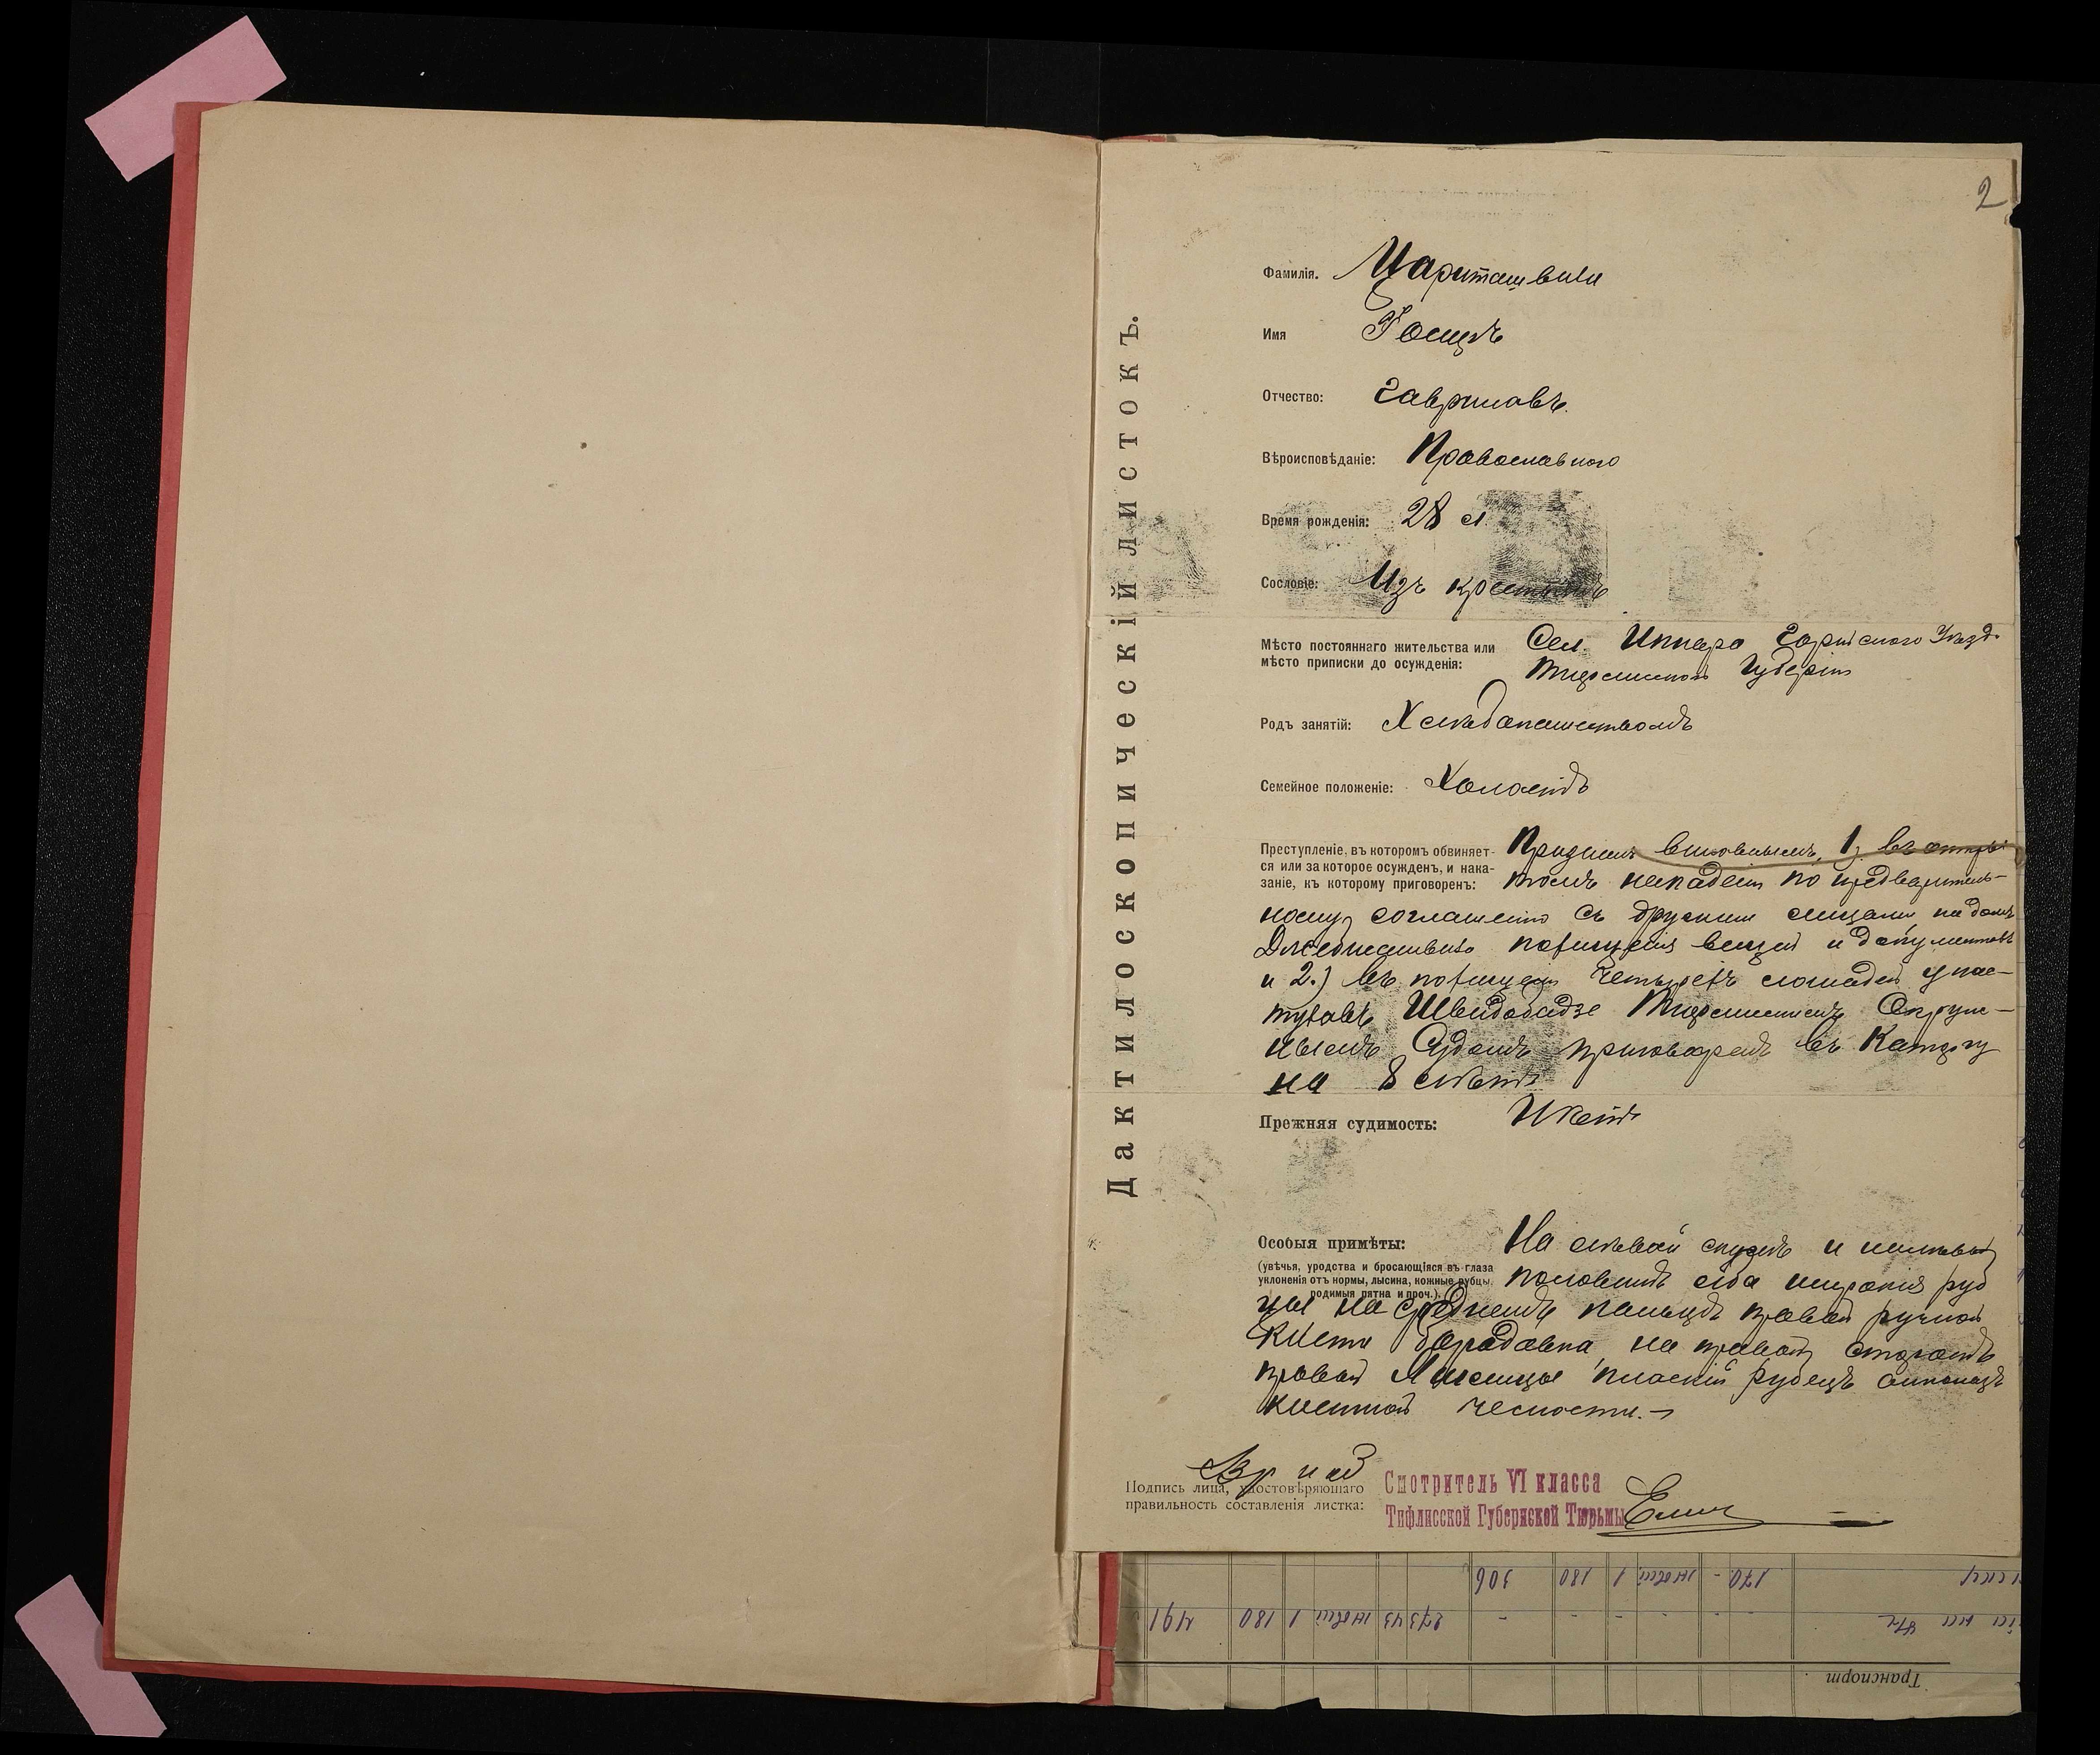 2
Дактилоскопическій листокъ.
Фамилія. Цариташвили
Имя
Отчество: Гавриловъ.
Вѣроисповѣданіе: Православного
Время рожденія: 28 л.
Сословіе: Изъ крестьянъ
Мѣсто постояннаго жительства или
мѣсто приписки до осужденія:
Сел. Горійского Уѣзд.
Тифлисской Губерніи
Родъ занятій: Хлѣбопашествомъ
Семейное положеніе: Холостъ
Преступленіе, въ которомъ обвиняет-
ся или за которое осужденъ, и нака-
заніе, къ которому приговоренъ:
Признанъ виновнымъ 1) въ откры-
томъ нападеніи по предваритель-
ному соглашенію съ другими лицами на домъ
похищенія вещей и документовъ
и 2.) въ похищеніи четырехъ лошадей у пас-
туховъ Тифлисскимъ Окруж-
нымъ Судомъ приговоренъ въ Каторгу
на 8 лѣтъ
Прежняя судимость:
Особыя примѣты:
(увѣчья, уродства и бросающіяся въ глаза
уклоненія отъ нормы, лысина, кожные рубцы,
родимыя пятна и проч.).
На лѣвой скулѣ и на лѣвой
половинѣ лба широкія руб
цы на среднемъ пальцѣ правой ручной
Кисти бородавка на правой сторонѣ
правой плоскій рубецъ
чесности.
Подпись лица, удостовѣряющаго
правильность составленія листка:
Смотритель VI класса
Тифлисской Губернской Тюрьмы
170 - 1 180 306
27343 1 180 491
Транспорт